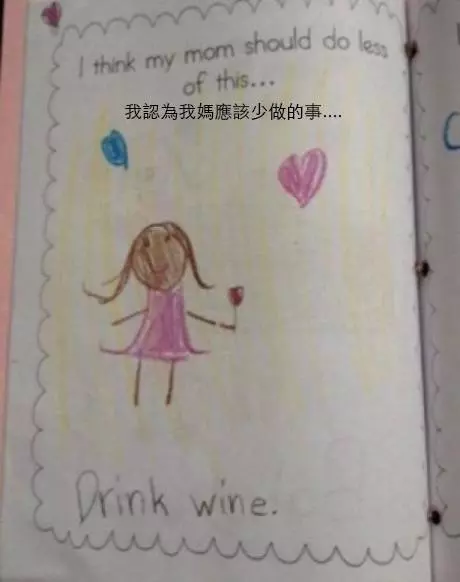 I think my mom should do less
of this...
我認為我媽應該少做的事....
Drink wine.